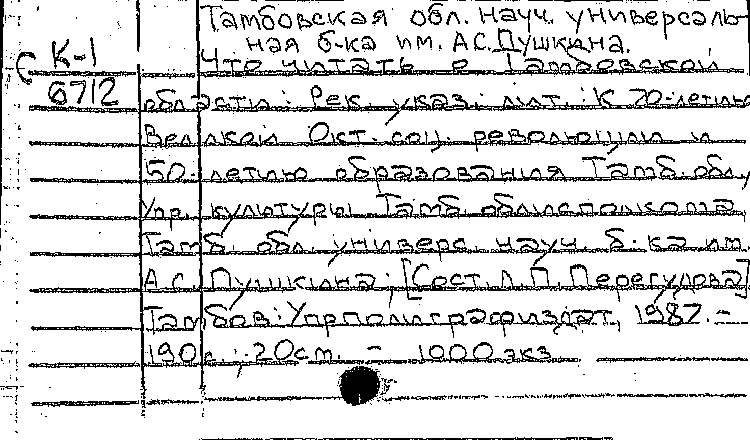 Тамбовская обл. науч. универсаль-
ная б-ка им. А.С. Пушкина.
К-1 Что читать о Тамбовской
6712 области: Рек. указ. лит.: К 70-летию
Великой Окт. соц. революции и
50-летию образования Тамб. обл.,
Упр. культуры Тамб. облисполкома,
Тамб. обл. универс. науч. б-ка им.
А.С. Пушкина; [Сост. Л.П. Перегудова]
Тамбов: Упрполиграфиздат, 1987. -
190 с.; 20 см. - 1000 экз.